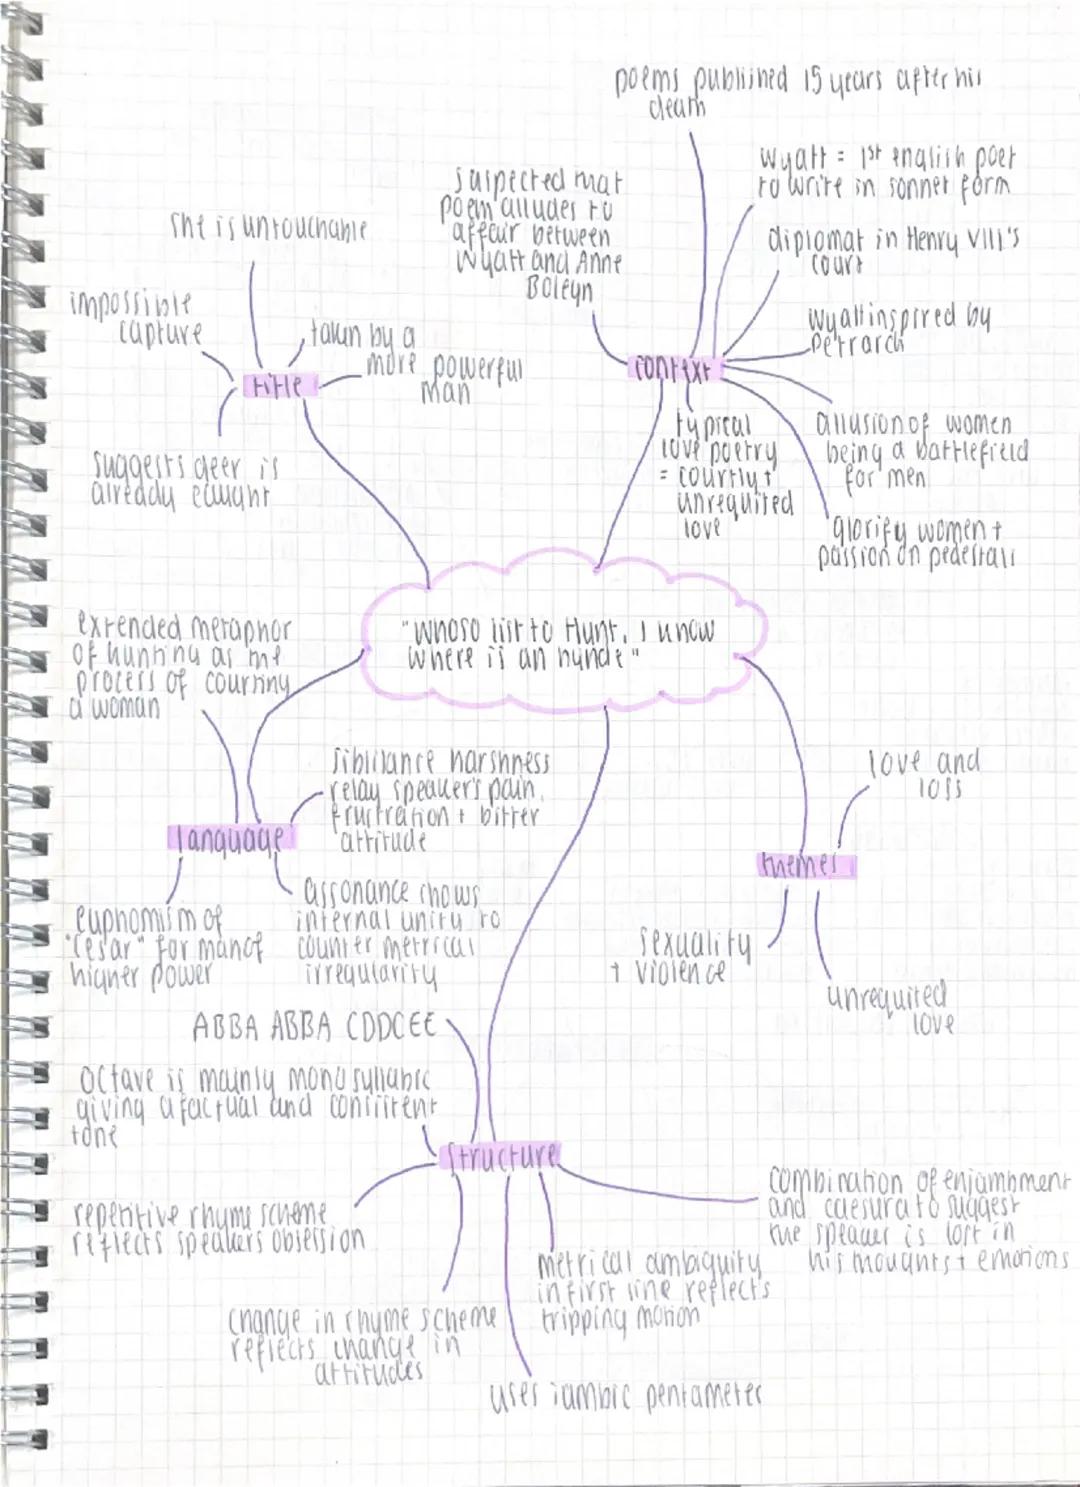 poems published 15 years after his
death
Wyatt = 1st english poet
to write in sonnet form
suspected that
poem alludes to
affair between
Wyatt and Anne
Boleyn
diplomat in Henry VIII's
court
Wyatt inspired by
Petrarch
context
allusion of women
being a battlefield
for men
typical
love poetry
= courtly +
unrequited
love
glorify women +
passion on pedestals
she is untouchable
impossible
capture
taken by a
more powerful
man
title
suggests deer is
already caught
"Whoso list to Hunt, I know
where is an hynde"
extended metaphor
of hunting as the
process of courting
a woman
sibilance harshness
relay speaker's pain,
frustration + bitter
attitude
language
euphomism of
"Cesar" for man of
higher power
assonance shows
internal unity to
counter metrical
irregularity
love and
loss
themes
sexuality
+ violence
unrequited
love
ABBA ABBA CDDCEE
octave is mainly monosyllabic
giving a factual and consistent
tone
structure
repetitive rhyme scheme
reflects speakers obsession
change in rhyme scheme
reflects change in
attitudes
uses iambic pentameter
metrical ambiguity
in first line reflects
tripping motion
combination of enjambment
and caesura to suggest
the speaker is lost in
his thoughts + emotions